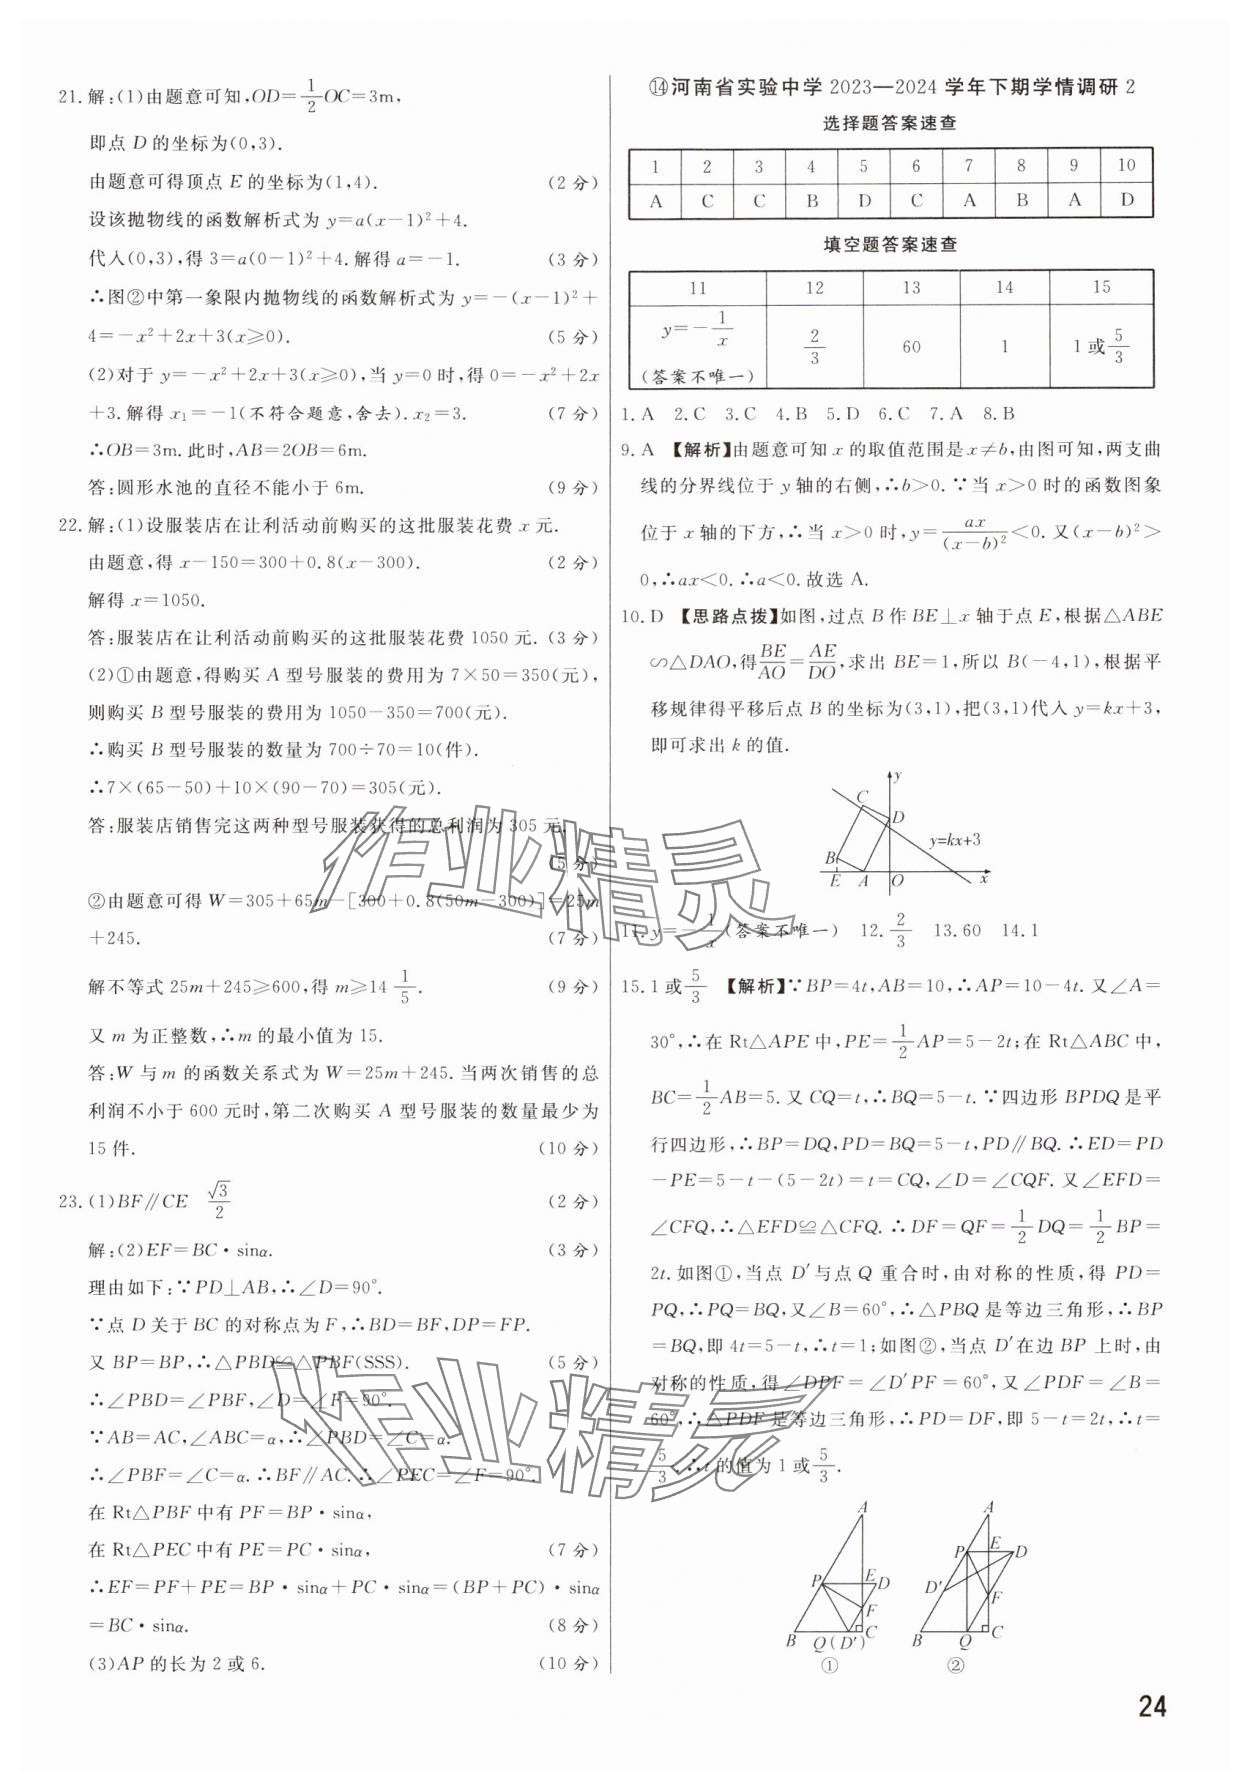 21.解:(1)由题意可知,OD=1/2 OC=3m,
即点 D 的坐标为(0,3).
由题意可得顶点 E 的坐标为(1,4). (2 分)
设该抛物线的函数解析式为 y=a(x-1)²+4.
代入(0,3),得 3=a(0-1)²+4.解得 a=-1. (3 分)
∴图②中第一象限内抛物线的函数解析式为 y=-(x-1)²+
4=-x²+2x+3(x≥0). (5 分)
(2)对于 y=-x²+2x+3(x≥0),当 y=0 时,得 0=-x²+2x
+3.解得 x₁=-1(不符合题意,舍去).x₂=3. (7 分)
∴OB=3m.此时,AB=2OB=6m.
答:圆形水池的直径不能小于 6m. (9 分)
22.解:(1)设服装店在让利活动前购买的这批服装花费 x 元.
由题意,得 x-150=300+0.8(x-300). (2 分)
解得 x=1050.
答:服装店在让利活动前购买的这批服装花费 1050 元. (3 分)
(2)①由题意,得购买 A 型号服装的费用为 7×50=350(元),
则购买 B 型号服装的费用为 1050-350=700(元).
∴购买 B 型号服装的数量为 700÷70=10(件).
∴7×(65-50)+10×(90-70)=305(元).
答:服装店销售完这两种型号服装获得的总利润为 305 元.
(5 分)
②由题意可得 W=305+65m-[300+0.8(50m-300)]=25m
+245. (7 分)
解不等式 25m+245≥600,得 m≥14 1/5. (9 分)
又 m 为正整数,∴m 的最小值为 15.
答:W 与 m 的函数关系式为 W=25m+245.当两次销售的总
利润不小于 600 元时,第二次购买 A 型号服装的数量最少为
15 件. (10 分)
23.(1)BF∥CE √3/2 (2 分)
解:(2)EF=BC·sinα. (3 分)
理由如下:∵PD⊥AB,∴∠D=90°.
∵点 D 关于 BC 的对称点为 F,∴BD=BF,DP=FP.
又 BP=BP,∴△PBD≌△PBF(SSS). (5 分)
∴∠PBD=∠PBF,∠D=∠F=90°.
∵AB=AC,∠ABC=α,∴∠PBD=∠C=α.
∴∠PBF=∠C=α.∴BF∥AC.∴∠PEC=∠F=90°.
在 Rt△PBF 中有 PF=BP·sinα,
在 Rt△PEC 中有 PE=PC·sinα, (7 分)
∴EF=PF+PE=BP·sinα+PC·sinα=(BP+PC)·sinα
=BC·sinα. (8 分)
(3)AP 的长为 2 或 6. (10 分)
⑭河南省实验中学 2023—2024 学年下期学情调研 2
选择题答案速查
1 2 3 4 5 6 7 8 9 10
A C C B D C A B A D
填空题答案速查
11 12 13 14 15
y=-1/x (答案不唯一) 2/3 60 1 1 或 5/3
1.A 2.C 3.C 4.B 5.D 6.C 7.A 8.B
9.A 【解析】由题意可知 x 的取值范围是 x≠b,由图可知,两支曲
线的分界线位于 y 轴的右侧,∴b>0.∵当 x>0 时的函数图象
位于 x 轴的下方,∴当 x>0 时,y=ax/(x-b)²<0.又(x-b)²>
0,∴ax<0.∴a<0.故选 A.
10.D 【思路点拨】如图,过点 B 作 BE⊥x 轴于点 E,根据△ABE
∽△DAO,得BE/AO=AE/DO,求出 BE=1,所以 B(-4,1),根据平
移规律得平移后点 B 的坐标为(3,1),把(3,1)代入 y=kx+3,
即可求出 k 的值.
y
C
D
y=kx+3
B
E A O x
11.y=-1/x(答案不唯一) 12.2/3 13.60 14.1
15.1 或 5/3 【解析】∵BP=4t,AB=10,∴AP=10-4t.又∠A=
30°,∴在 Rt△APE 中,PE=1/2 AP=5-2t;在 Rt△ABC 中,
BC=1/2 AB=5.又 CQ=t,∴BQ=5-t.∵四边形 BPDQ 是平
行四边形,∴BP=DQ,PD=BQ=5-t,PD∥BQ.∴ED=PD
-PE=5-t-(5-2t)=t=CQ,∠D=∠CQF.又∠EFD=
∠CFQ,∴△EFD≌△CFQ.∴DF=QF=1/2 DQ=1/2 BP=
2t.如图①,当点 D′与点 Q 重合时,由对称的性质,得 PD=
PQ,∴PQ=BQ,又∠B=60°,∴△PBQ 是等边三角形,∴BP
=BQ,即 4t=5-t,∴t=1;如图②,当点 D′在边 BP 上时,由
对称的性质,得∠DPF=∠D′PF=60°,又∠PDF=∠B=
60°,∴△PDF 是等边三角形,∴PD=DF,即 5-t=2t,∴t=
5/3.∴t 的值为 1 或 5/3.
A
P E D
F
B Q(D′) C
①
A
P E D
D′ F
B Q C
②
作业精灵
作业精灵
24